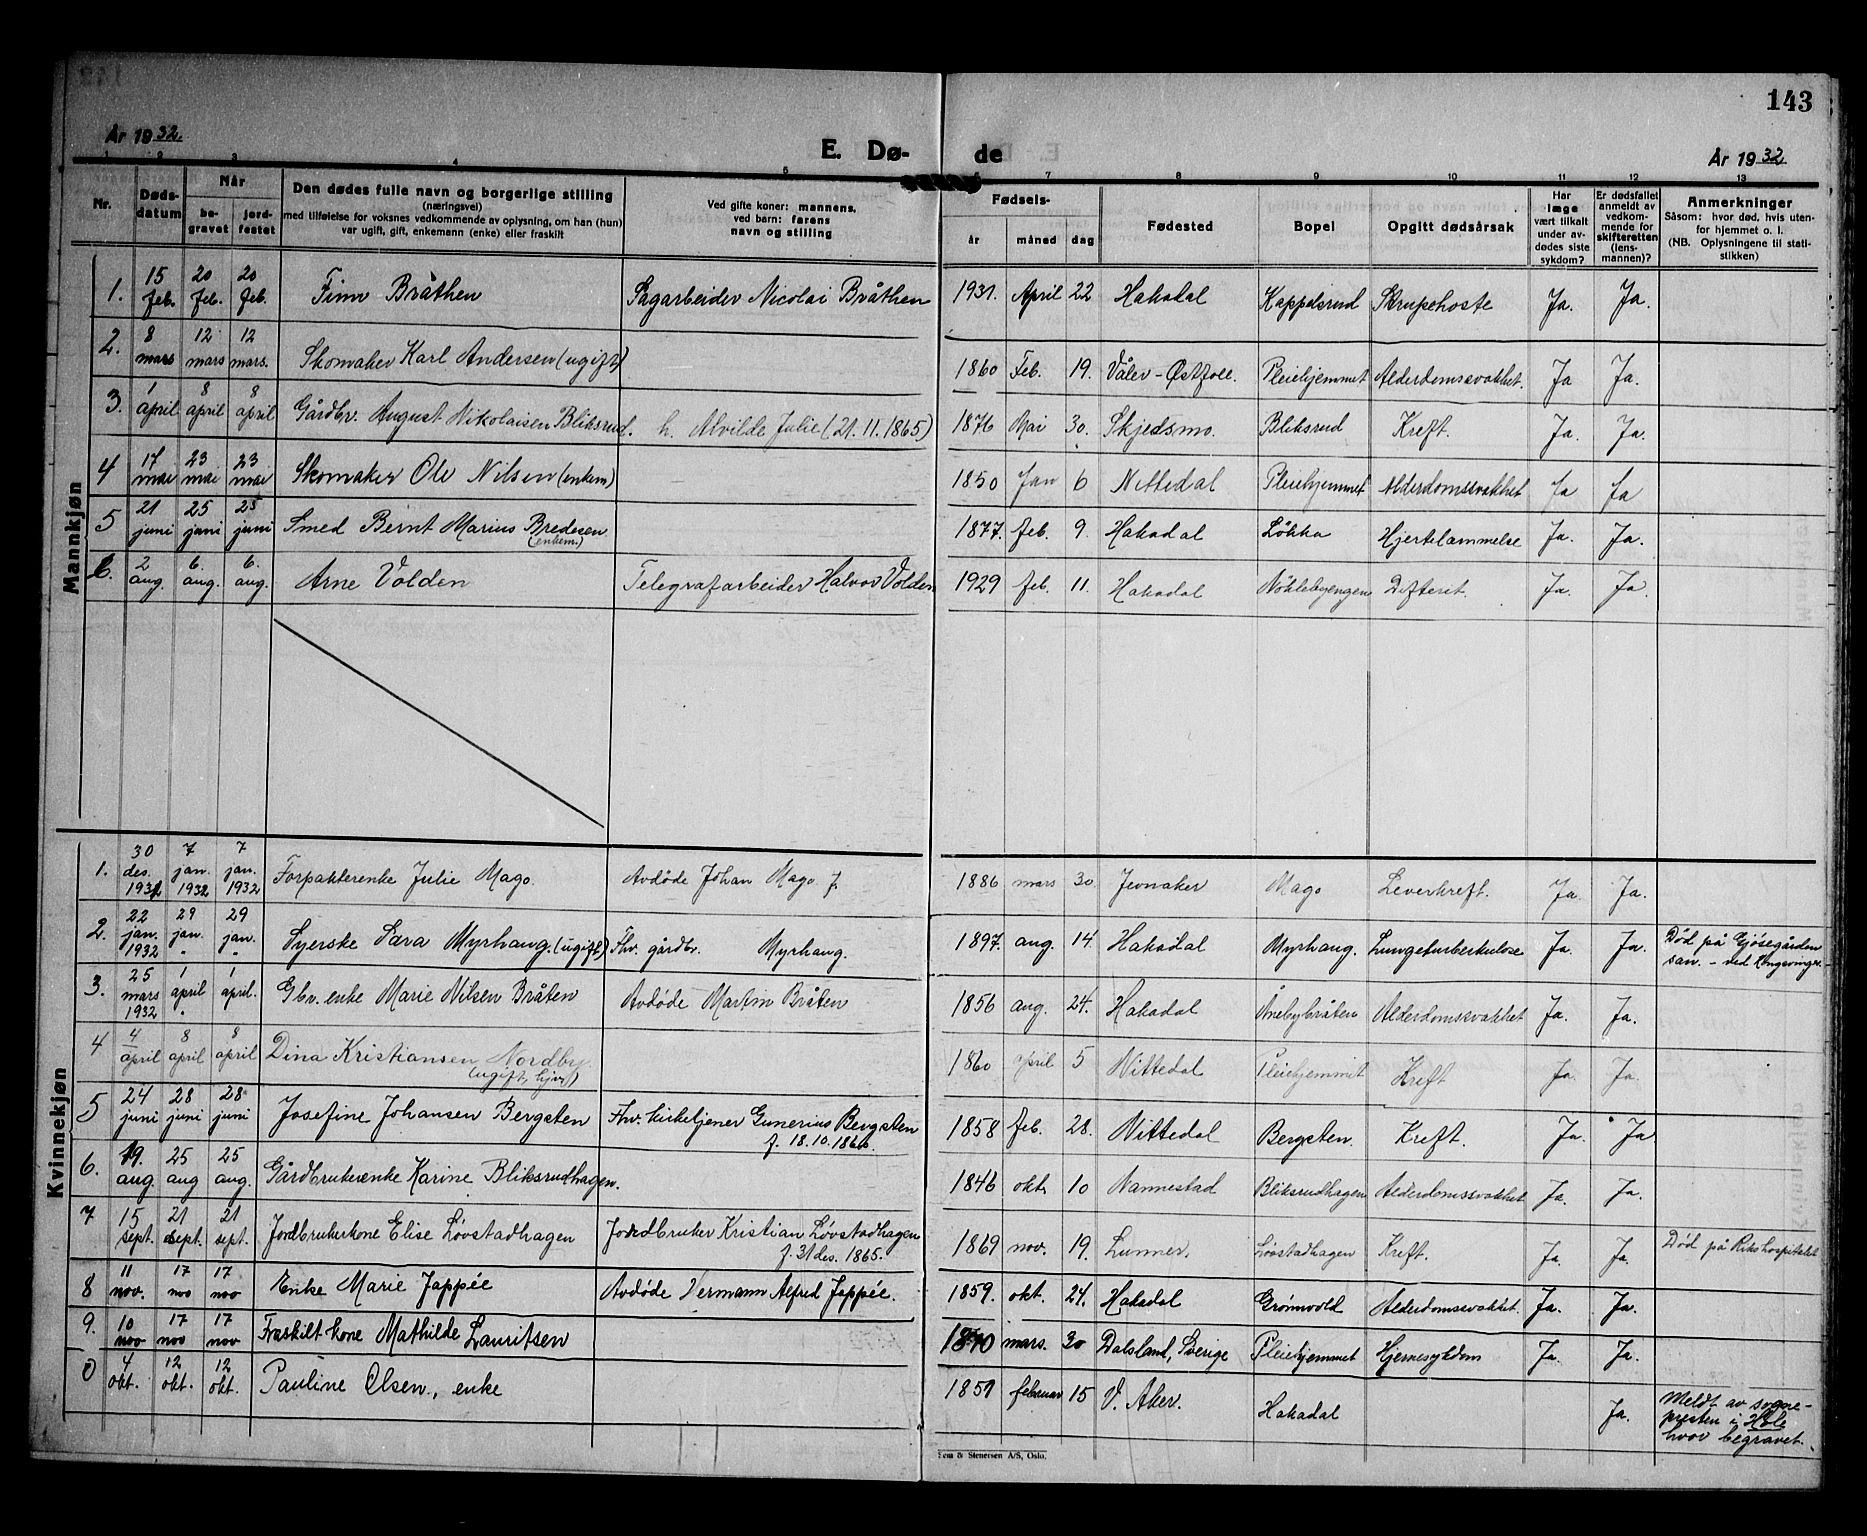 143
År 1932.
E. Dø-
de
År 1932
1 2 3 4 5 7 8 9 10 11 12 13
Nr.
Døds-
datum
Når
be-
gravet
jord-
festet
Den dødes fulle navn og borgerlige stilling
(næringsvei)
med tilføielse for voksnes vedkommende av oplysning, om han (hun)
var ugift, gift, enkemann (enke) eller fraskilt
Ved gifte koner: mannens,
ved barn: farens
navn og stilling
Fødsels-
år måned dag
Fødested
Bopel
Opgitt dødsårsak
Har
læge
vært tilkalt
under av-
dødes siste
sykdom?
Er dødsfallet
anmeldt av
vedkom-
mende for
skifteretten
(lens-
mannen)?
Anmerkninger
Såsom: hvor død, hvis uten-
for hjemmet o. l.
(NB. Oplysningene til stati-
stikken)
Mannkjøn
1. 15 feb. 20 feb. 20 feb. Finn Bråthen Sagarbeider Nicolai Bråthen 1931. April 22 Hakadal Kappelsrud Strupehoste Ja. Ja.
2. 8 mars 12 mars 12 mars. Skomaker Karl Andersen (ugift) 1860 Feb. 19. Våler - Østfold. Pleiehjemmet Alderdomssvakhet. Ja Ja.
3. 1 april 8 april 8 april Gårdbr. August Nikolaisen Bliksrud. h. Alvilde Julie (21.11.1865) 1876 Mai 30. Skjedsmo. Bliksrud Kreft. Ja. Ja.
4 17 mai 23 mai 23 mai Skomaker Ole Nilsen (enkem) 1850 Jan 6 Nittedal Pleiehjemmet Alderdomssvakhet Ja Ja
5 21 juni 25 juni 25 juni Smed Bernt Marius Bredesen (enkem.) 1877. feb. 9. Hakadal Løkka Hjertelammelse Ja. Ja.
6. 2 aug. 6. aug. 6. aug. Arne Volden Telegrafarbeider Halvor Volden 1929 feb. 11. Hakadal Nøklebyengen Difterit. Ja. Ja.
Kvinnekjøn
1. 30 des. 1931 7 jan. 1932 7 jan. 1932 Forpakterenke Julie Mago. Avdøde Johan Mago f. 1886 mars 30. Jevnaker Mago Leverkreft. Ja. Ja.
2. 22 jan. 1932 29 jan. " 29 jan. " Syerske Sara Myrhaug. (ugift) Fhv. gårdbr. Myrhaug. 1897. aug. 14. Hakadal Myrhaug. Lungetuberkulose Ja. Ja. Død på Gjøsegården san. - ved Kongsvinger.
3. 25 mars 1932 1 april " 1 april. Gbr. enke Marie Nilsen Bråten Avdøde Martin Bråten 1856 aug. 24. Hakadal Ånebybråten Alderdomssvakhet Ja. Ja.
4 4 april 8 april 8 april Dina Kristiansen Nordby. 1860 april 5 Nittedal Pleiehjemmet Kreft Ja. Ja.
5 24 juni 28 juni 28 juni Josefine Johansen Bergsten Fhv. kirketjener Gunerius Bergsten f. 18.10.1866. 1858 feb. 28. Nittedal Bergsten. Kreft. Ja. Ja
6. 19. aug. 25 aug 25 aug. Gårdbrukerenke Karine Bliksrudhagen. 1846 okt. 10 Nannestad Bliksrudhagen Alderdomssvakhet Ja. Ja.
7 15 sept. 21 sept. 21 sept. Jordbrukerkone Elise Løvstadhagen Jordbruker Kristian Løvstadhagen f. 31 des. 1865. 1869 nov. 19. Lunner. Løvstadhagen Kreft. Ja Ja. Død på Rikshospitalet
8 11 nov. 17 nov 17 nov Enke Marie Jappée Avdøde Hermann Alfred Jappée. 1859. okt. 24. Hakadal Grønvold Alderdomssvakhet. Ja. Ja.
9. 10 nov 17 nov 17 nov Fraskilt kone Mathilde Lauritsen mars. 30 Dalsland, Sverige Pleiehjemmet Hjernesykdom Ja. Ja.
0 4 okt. 12 okt. 12 okt. Pauline Olsen, enke 1851 februar 15 V. Aker. Hakadal Ja. Meldt av sogne-
presten i Hole
hvor begravet.
& Stenersen A/S, Oslo.